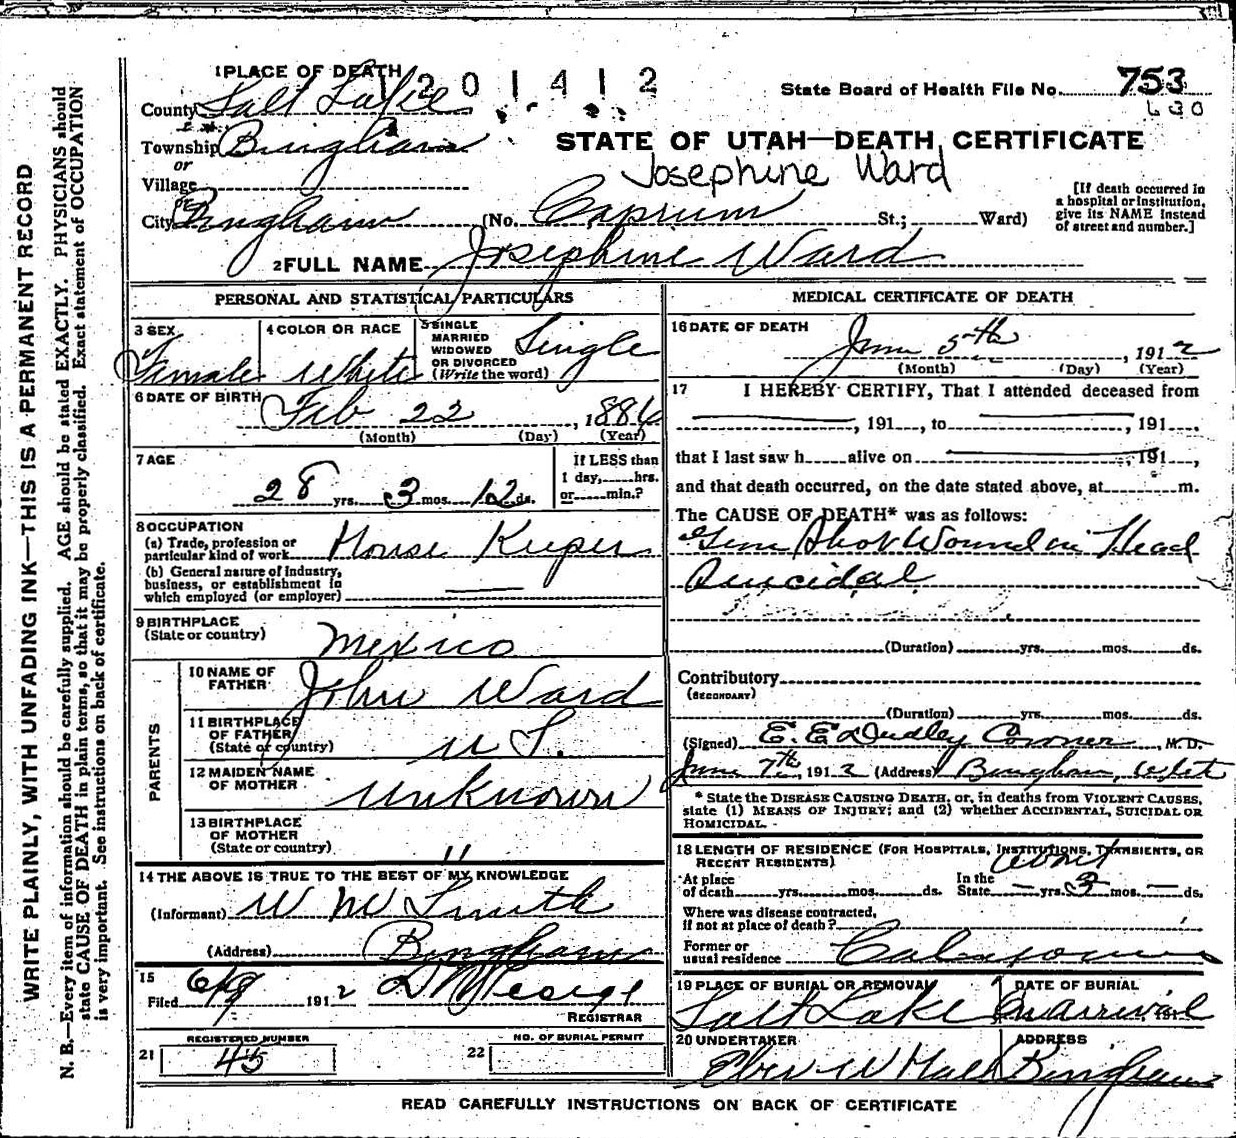 1 PLACE OF DEATH
1 2 0 1 4 1 2
State Board of Health File No. 753
630
County Salt Lake
Township Bingham
or
Village
STATE OF UTAH—DEATH CERTIFICATE
Josephine Ward
City Bingham (No. St.; Ward)
[If death occurred in
a hospital or institution,
give its NAME instead
of street and number.]
2 FULL NAME Josephine Ward
WRITE PLAINLY, WITH UNFADING INK—THIS IS A PERMANENT RECORD
N. B.—Every item of information should be carefully supplied. AGE should be stated EXACTLY. PHYSICIANS should
state CAUSE OF DEATH in plain terms, so that it may be properly classified. Exact statement of OCCUPATION
is very important. See instructions on back of certificate.
PERSONAL AND STATISTICAL PARTICULARS
3 SEX
Female
4 COLOR OR RACE
White
5 SINGLE
MARRIED
WIDOWED
OR DIVORCED
(Write the word)
Single
6 DATE OF BIRTH
Feb 22, 1886
(Month) (Day) (Year)
7 AGE
28 yrs. 3 mos. 12 ds.
If LESS than
1 day, hrs.
or min.?
8 OCCUPATION
(a) Trade, profession or
particular kind of work House Keeper
(b) General nature of industry,
business, or establishment in
which employed (or employer)
9 BIRTHPLACE
(State or country) Mexico
PARENTS
10 NAME OF
FATHER John Ward
11 BIRTHPLACE
OF FATHER
(State or country) U S.
12 MAIDEN NAME
OF MOTHER Unknown
13 BIRTHPLACE
OF MOTHER
(State or country) "
14 THE ABOVE IS TRUE TO THE BEST OF MY KNOWLEDGE
(Informant) W M Smith
(Address) Bingham
15
Filed 6/9 1912
REGISTRAR
REGISTERED NUMBER
21 45
NO. OF BURIAL PERMIT
22
MEDICAL CERTIFICATE OF DEATH
16 DATE OF DEATH
June 5th, 1912
(Month) (Day) (Year)
17 I HEREBY CERTIFY, That I attended deceased from
, 191 , to , 191 ,
that I last saw h alive on , 191 ,
and that death occurred, on the date stated above, at m.
The CAUSE OF DEATH* was as follows:
Gun Shot Wound in Head
Suicidal
(Duration) yrs. mos. ds.
Contributory
(SECONDARY)
(Duration) yrs. mos. ds.
(Signed) E. E. Dudley Coroner, M. D.
June 7th, 1912 (Address) Bingham, Utah
* State the DISEASE CAUSING DEATH, or, in deaths from VIOLENT CAUSES,
state (1) MEANS OF INJURY; and (2) whether ACCIDENTAL, SUICIDAL OR
HOMICIDAL.
18 LENGTH OF RESIDENCE (FOR HOSPITALS, INSTITUTIONS, TRANSIENTS, OR
RECENT RESIDENTS) about
At place
of death yrs. mos. ds. In the
State — yrs. 3 mos. — ds.
Where was disease contracted,
if not at place of death?
Former or
usual residence California
19 PLACE OF BURIAL OR REMOVAL
Salt Lake
DATE OF BURIAL
on arrival
20 UNDERTAKER
Eber W Hall
ADDRESS
Bingham
READ CAREFULLY INSTRUCTIONS ON BACK OF CERTIFICATE